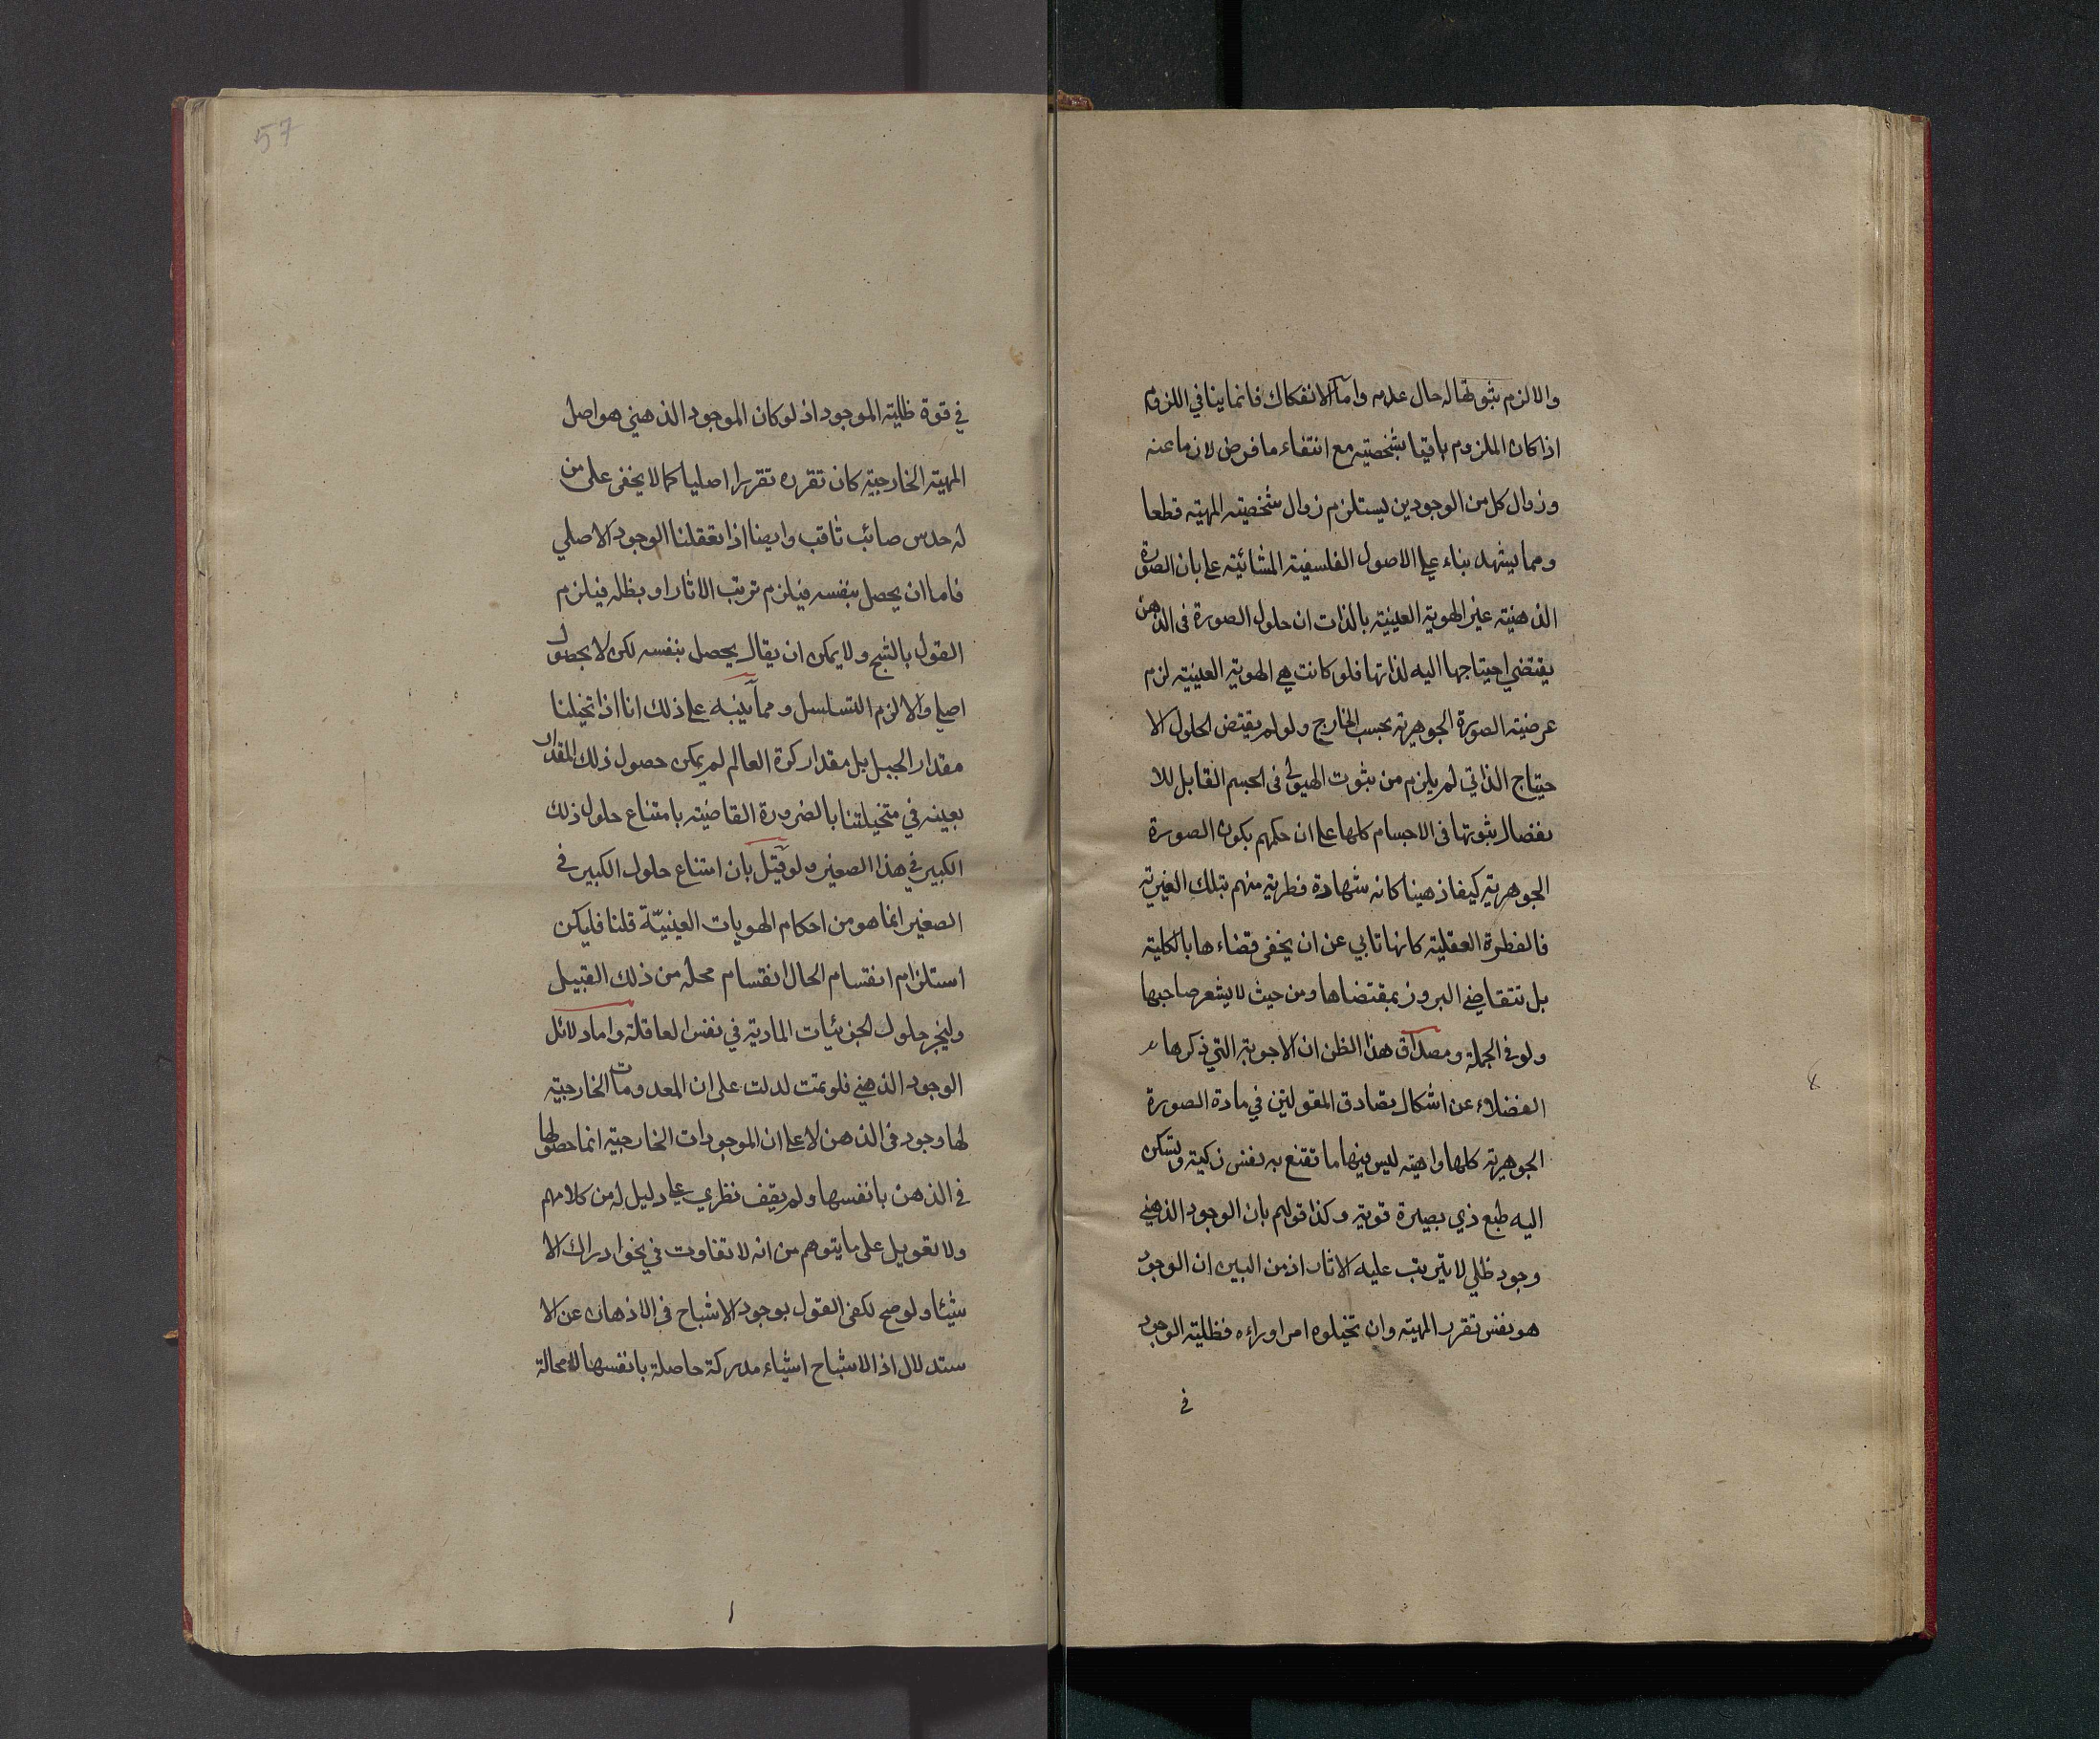 والا لزم ثبوتها له حال عدمه واما الانفكاك فانما ينافي اللزوم
اذا كان الملزوم باقيا بشخصيته مع انتفاء ما فرض لازما عنه
وزوال كل من الوجودين يستلزم زوال شخصية المهية قطعا
ومما يشهد بناء على الاصول الفلسفية المشائية على بان الصورة
الذهنية غير الهوية العينية بالذات ان حلول الصورة في الذهن
يقتضي احتياجها اليه لذاتها فلو كانت هي الهوية العينية لزم
عرضية الصورة الجوهرية بحسب الخارج ولو لم يقتض الحلول الا
حتياج الذاتي لم يلزم من ثبوت الهيولى في الجسم القابل للا
نفصال ثبوتها في الاجسام كلها على ان حكمهم بكون الصورة
الجوهرية كيفا ذهنيا كانه شهادة فطرية منهم بتلك الغيرية
فالفطرة العقلية كانها تابي عن ان يخفى قضاءها بالكلية
بل تتقاضى البروز بمقتضاها ومن حيث لا يشعر صاحبها
ولو في الجملة ومصداق هذا الظن ان الاجوبة التي ذكرها
الفضلاء عن اشكال تصادق المقولتين في مادة الصورة
الجوهرية كلها واهية ليس فيها ما تقنع به نفس زكية ويسكن
اليه طبع ذي بصيرة قوية وكذا قولهم بان الوجود الذهني
وجود ظلي لا يترتب عليه الاثار اذ من البين ان الوجود
هو نفس تقرر المهية وان تخيلوه امرا وراءه فظلية الوجود
في
57
في قوة ظلية الموجود اذ لو كان الموجود الذهني هو اصل
المهية الخارجية كان تقرره تقررا اصليا كما لا يخفى على من
له حدس صائب ثاقب وايضا اذا تعقلنا الوجود الاصلي
فاما ان يحصل بنفسه فيلزم ترتب الاثار او بظله فيلزم
القول بالشبح ولا يمكن ان يقال يحصل بنفسه لكن لا بحصول
اصلي والا لزم التسلسل ومما ينبه على ذلك انا اذا تخيلنا
مقدار الجبل بل مقدار كرة العالم لم يمكن حصول ذلك المقدار
بعينه في متخيلتنا بالضرورة القاضية بامتناع حلول ذلك
الكبير في هذا الصغير ولو قيل بان امتناع حلول الكبير في
الصغير انما هو من احكام الهويات العينيّة قلنا فليكن
استلزام انقسام الحال انقسام محله من ذلك القبيل
وليجز حلول الجزئيات المادية في نفس العاقلة واما دلائل
الوجود الذهني فلو تمت لدلت على ان المعدومات الخارجية
لها وجود في الذهن لا على ان الموجودات الخارجية انما حصولها
في الذهن بانفسها ولم يقف نظري على دليل له من كلامهم
ولا تعويل على ما يتوهم من انه لا تفاوت في نحو ادراك الا
شيئا ولو صح لكفى القول بوجود الاشباح في الاذهان عن الا
ستدلال اذ الاشباح اشياء مدركة حاصلة بانفسها لا محالة